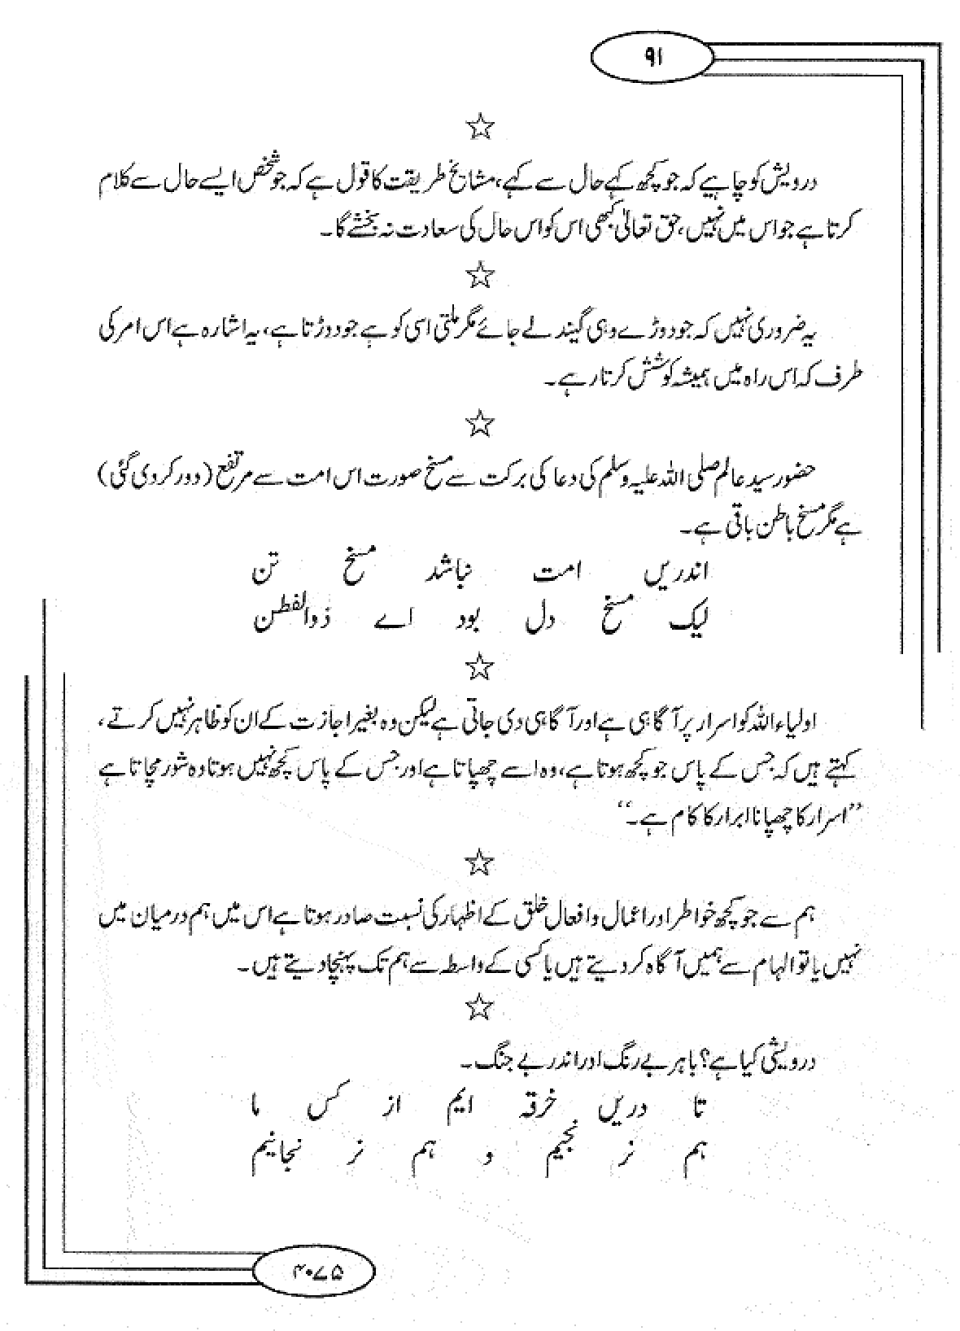 ۹۱
☆
درویش کو چاہیے کہ جو کچھ کہے حال سے کہے، مشائخ طریقت کا قول ہے کہ جو شخص ایسے حال سے کلام
کرتا ہے جو اس میں نہیں، حق تعالیٰ کبھی اس کو اس حال کی سعادت نہ بخشے گا۔
☆
یہ ضروری نہیں کہ جو دوڑے وہی گیند لے جائے مگر ملتی اسی کو ہے جو دوڑتا ہے، یہ اشارہ ہے اس امر کی
طرف کہ اس راہ میں ہمیشہ کوشش کرتا رہے۔
☆
حضور سید عالم صلی اللہ علیہ وسلم کی دعا کی برکت سے مسخ صورت اس امت سے مرتفع (دور کر دی گئی)
ہے مگر مسخ باطن باقی ہے۔
اندریں امت نباشد مسخ تن
لیک مسخ دل بود اے ذوالفطن
☆
اولیاء اللہ کو اسرار پر آگاہی ہے اور آگاہی دی جاتی ہے لیکن وہ بغیر اجازت کے ان کو ظاہر نہیں کرتے،
کہتے ہیں کہ جس کے پاس جو کچھ ہوتا ہے، وہ اسے چھپاتا ہے اور جس کے پاس کچھ نہیں ہوتا وہ شور مچاتا ہے
’’اسرار کا چھپانا ابرار کا کام ہے۔‘‘
☆
ہم سے جو کچھ خواطر اور اعمال و افعال خلق کے اظہار کی نسبت صادر ہوتا ہے اس میں ہم درمیان میں
نہیں یا تو الہام سے ہمیں آگاہ کر دیتے ہیں یا کسی کے واسطہ سے ہم تک پہنچا دیتے ہیں۔
☆
درویشی کیا ہے؟ باہر بے رنگ اور اندر بے جنگ۔
تا دریں خرقہ ایم از کس ما
ہم نر نجیم و ہم نر نجانیم